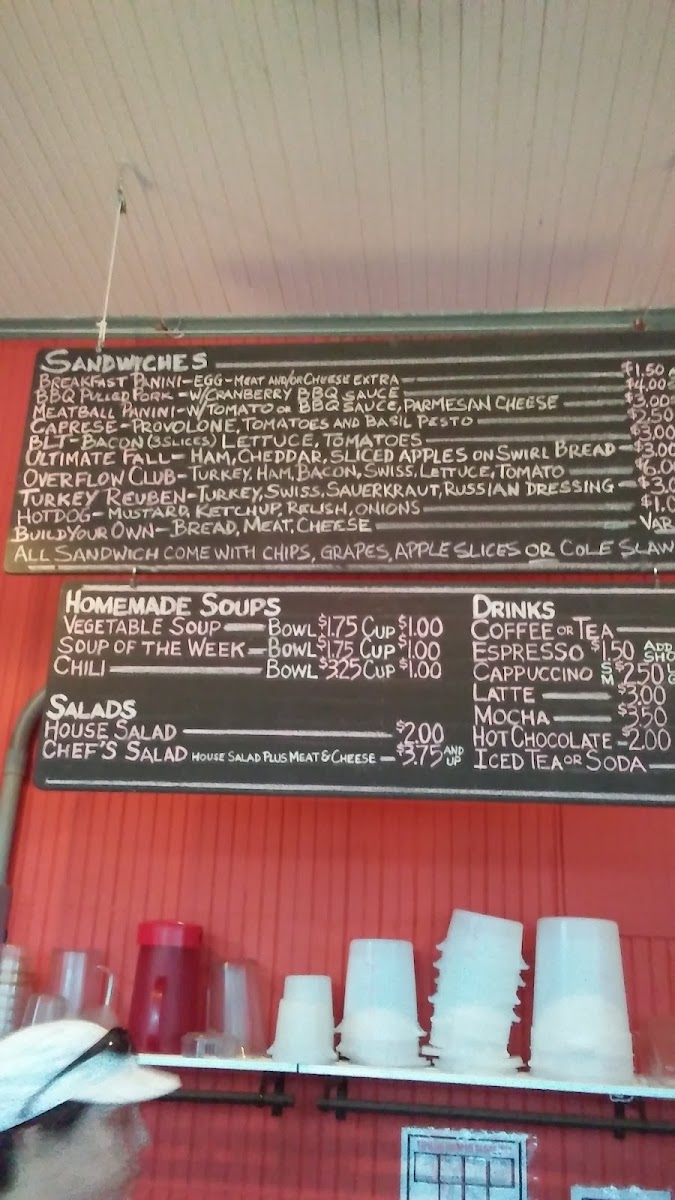 SANDWICHES
BREAKFAST PANINI-EGG-MEAT AND/OR CHEESE EXTRA $1.50
BBQ PULLED PORK-W/CRANBERRY BBQ SAUCE $4.00
MEATBALL PANINI-W/TOMATO OR BBQ SAUCE, PARMESAN CHEESE $3.00
CAPRESE-PROVOLONE, TOMATOES AND BASIL PESTO 2.50
BLT-BACON (3 SLICES) LETTUCE, TOMATOES $3.00
ULTIMATE FALL-HAM, CHEDDAR, SLICED APPLES ON SWIRL BREAD $3.00
OVERFLOW CLUB-TURKEY, HAM, BACON, SWISS, LETTUCE, TOMATO $6.0
TURKEY REUBEN-TURKEY, SWISS, SAUERKRAUT, RUSSIAN DRESSING $3.
HOTDOG-MUSTARD, KETCHUP, RELISH, ONIONS $1.
BUILD YOUR OWN-BREAD, MEAT, CHEESE VAR
ALL SANDWICH COME WITH CHIPS, GRAPES, APPLE SLICES OR COLE SLAW
HOMEMADE SOUPS
VEGETABLE SOUP BOWL $1.75 CUP $1.00
SOUP OF THE WEEK BOWL $1.75 CUP $1.00
CHILI BOWL $3.25 CUP $1.00
SALADS
HOUSE SALAD $2.00
CHEF'S SALAD HOUSE SALAD PLUS MEAT & CHEESE $3.75 AND UP
DRINKS
COFFEE OR TEA
ESPRESSO $1.50 ADD SHO
CAPPUCCINO SM $2.50
LATTE $3.00
MOCHA $3.50
HOT CHOCOLATE 2.00
ICED TEA OR SODA